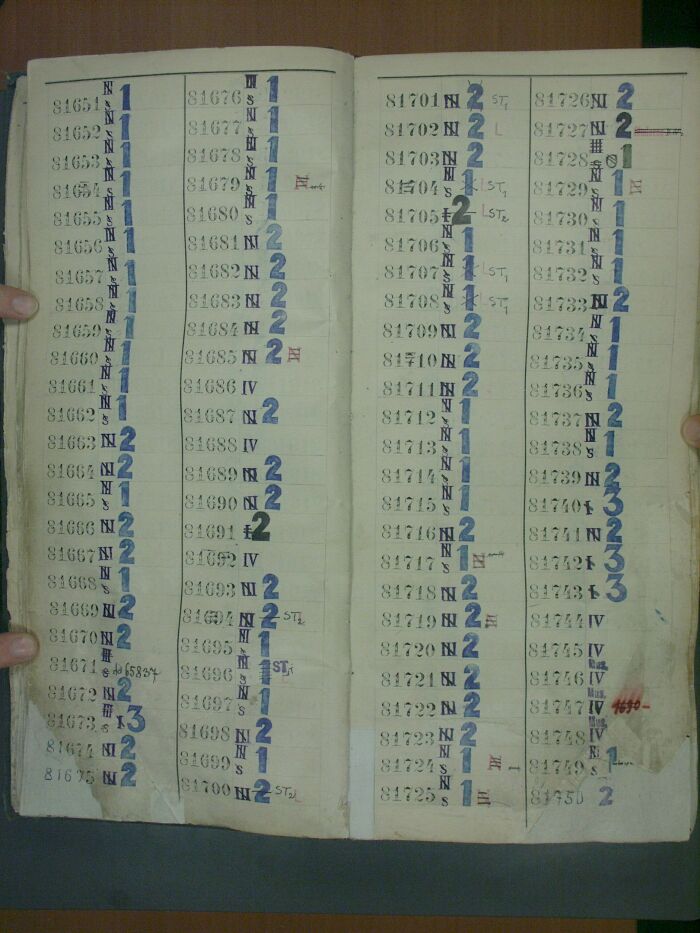 81651 N s 1
81652 N s 1
81653 N s 1
81654 N s 1
81655 N s 1
81656 N s 1
81657 N s 1
81658 N s 1
81659 N s 1
81660 N s 1
81661 N s 1
81662 N s 1
81663 N 2
81664 N 2
81665 N s 1
81666 N 2
81667 N 2
81668 N s 1
81669 N 2
81670 N 2
81671 s do 65837
81672 N 2
81673 s 3
81674 N 2
81675 N 2
81676 N s 1
81677 N s 1
81678 N s 1
81679 N s 1
81680 N s 1
81681 N 2
81682 N 2
81683 N 2
81684 N 2
81685 N 2
81686 IV
81687 N 2
81688 IV
81689 N 2
81690 N 2
81691 2
81692 IV
81693 N 2
81694 N 2 ST2
81695 N s 1
81696 N s 1 ST1
81697 N s 1
81698 N 2
81699 N s 1
81700 N 2 ST2 L
81701 N 2 ST1
81702 N 2 L
81703 N 2
81704 N s 1 L ST1
81705 2 L ST2
81706 N s 1
81707 N s 1 L ST1
81708 N s 1 L ST1
81709 N 2
81710 N 2
81711 N 2
81712 N s 1
81713 N s 1
81714 N s 1
81715 N s 1
81716 N 2
81717 N s 1
81718 N 2
81719 N 2
81720 N 2
81721 N 2
81722 N 2
81723 N 2
81724 N s 1
81725 N s 1
81726 N 2
81727 N 2
81728 s 1
81729 N s 1
81730 N s 1
81731 N s 1
81732 N s 1
81733 N 2
81734 N s 1
81735 N s 1
81736 N s 1
81737 N 2
81738 N s 1
81739 N 2
81740 3
81741 N 2
81742 3
81743 3
81744 IV
81745 IV
Mus.
81746 IV
Mus.
81747 IV 1690-
Mus.
81748 IV
81749 N s 1
81750 2